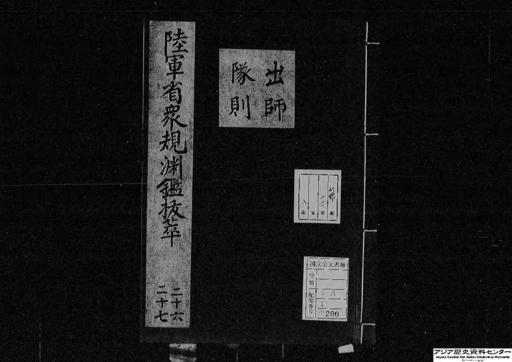 陸軍省衆規渕鑑抜萃
二十六
二十七
出師
隊則
国立公文書館
分類
配架番号
3A
200
アジア歴史資料センター
Japan Center for Asian Historical Records